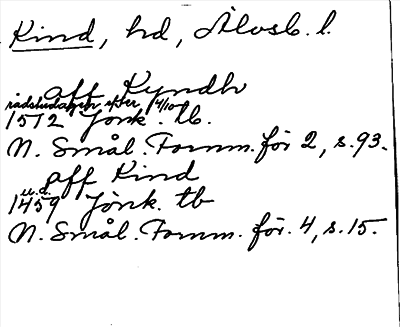 Kind, hd, Älvsb. l.
aff Kyndh
rådstudagen efter 4/10
1512 Jönk. tb.
N. Smål. Fornm. för 2, s. 93.
aff Kind
u.d.
1459 Jönk. tb
N. Smål. Fornm. för. 4, s. 15.